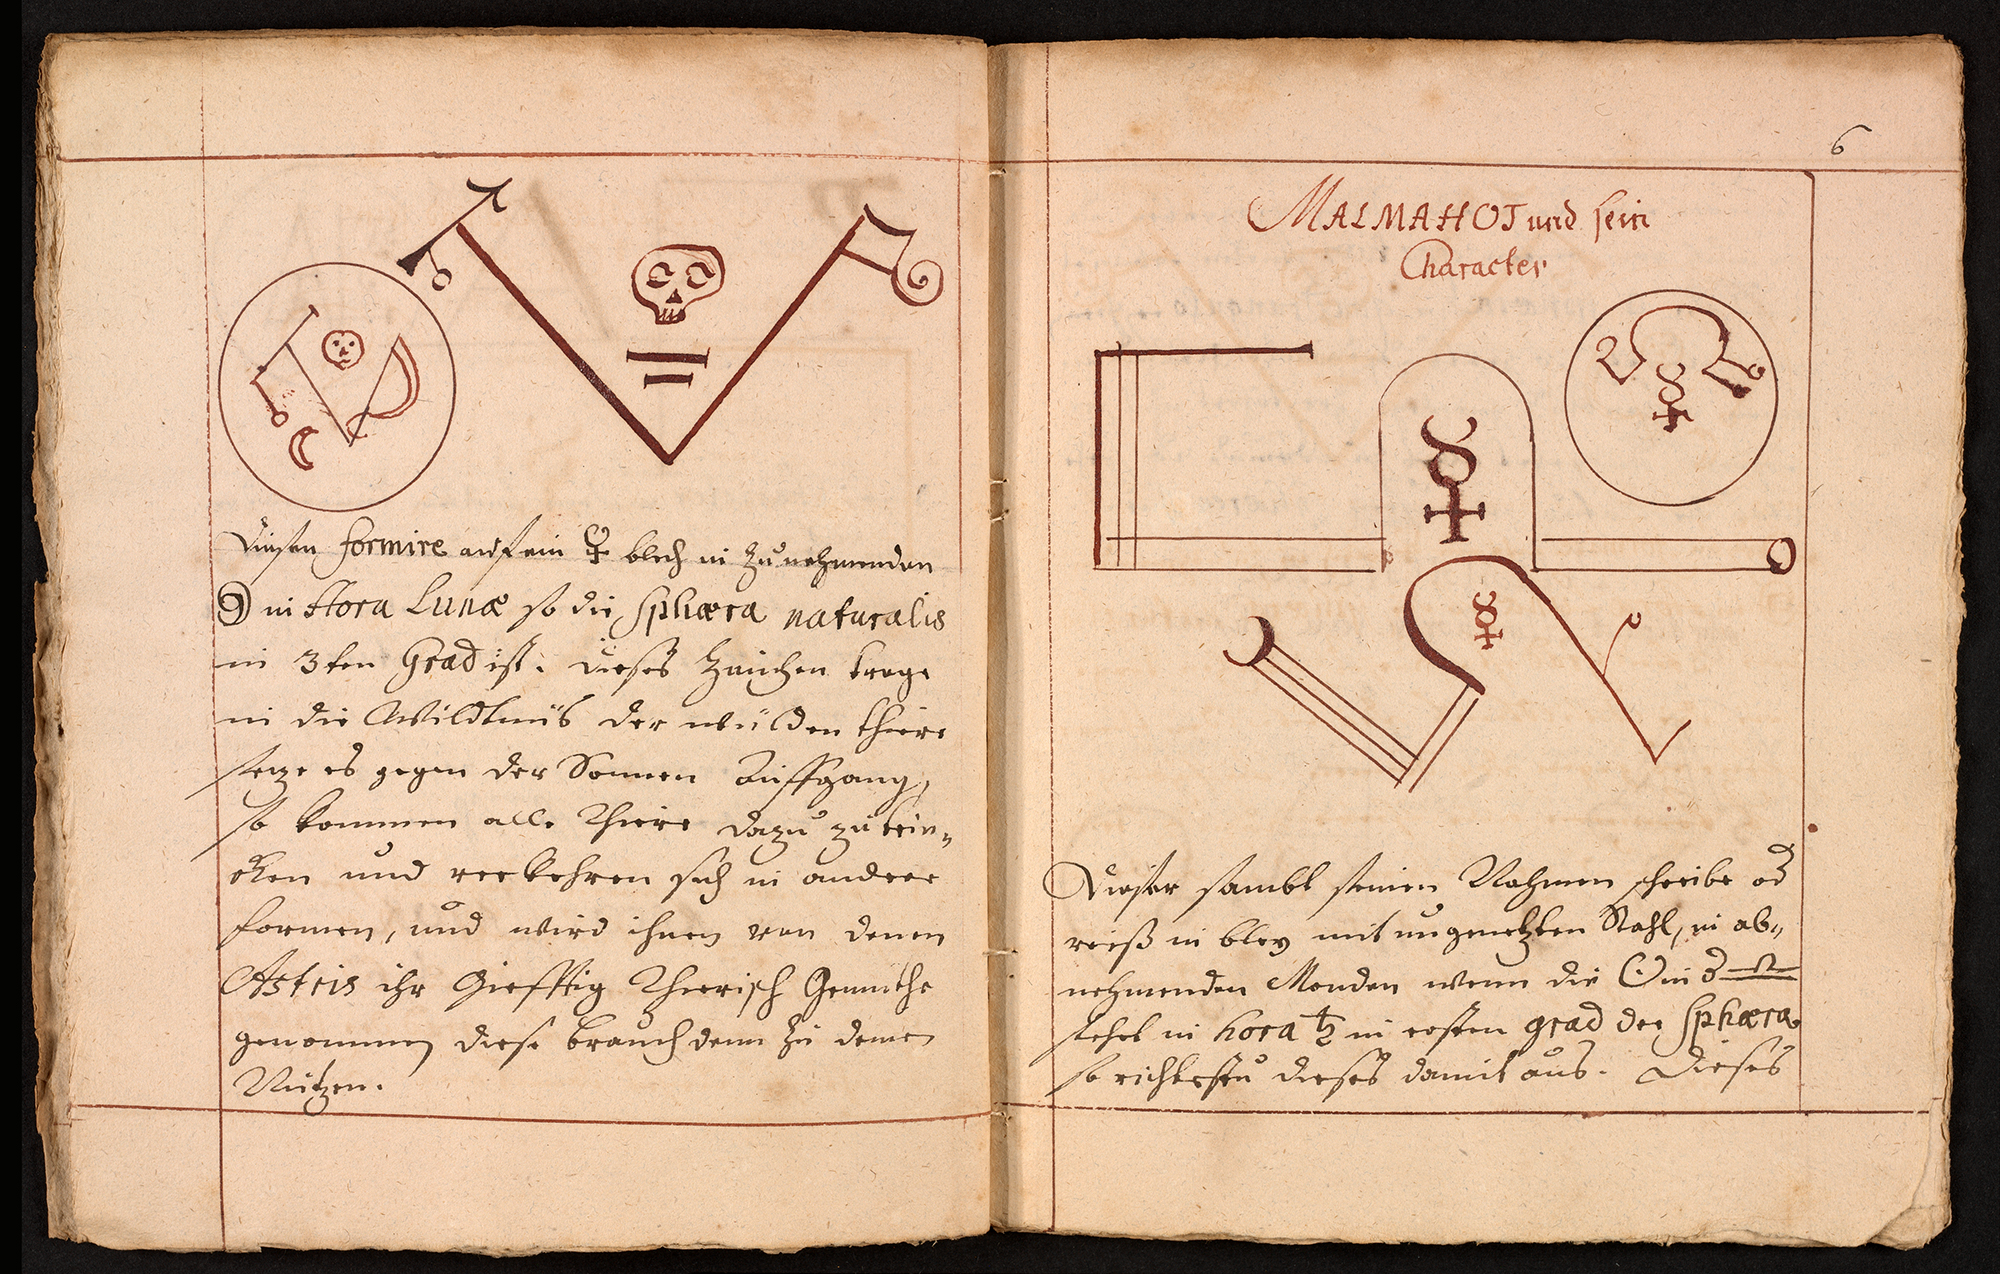 Diesen formire auf ein ☿ blech in zunehmenden
☽ in Hora Lunæ so die Sphæra naturalis
in 3ten Grad ist. Dieses Zeichen trage
in die Wildtnüs der wülden thiere
setze es gegen der Sonnen Auffgang,
so kommen alle Thiere dazu zu trin-
cken und verkehren sich in andere
formen, und wird ihnen von denen
Astris ihr Giefftig Thierisch Gemüthe
genommen diese brauch denn zu deinen
Nutzen.
6
MALMAHOT und sein
Character
Dieser sambt seinen Nahmen schreibe od
reiß in bley mit ungenetzten Stahl, in ab-
nehmenden Monden wenn die ☉ in 3 ♎
stehet in hora ♄ in ersten grad der Sphæra
so richtestu dieses damit aus. Dieses